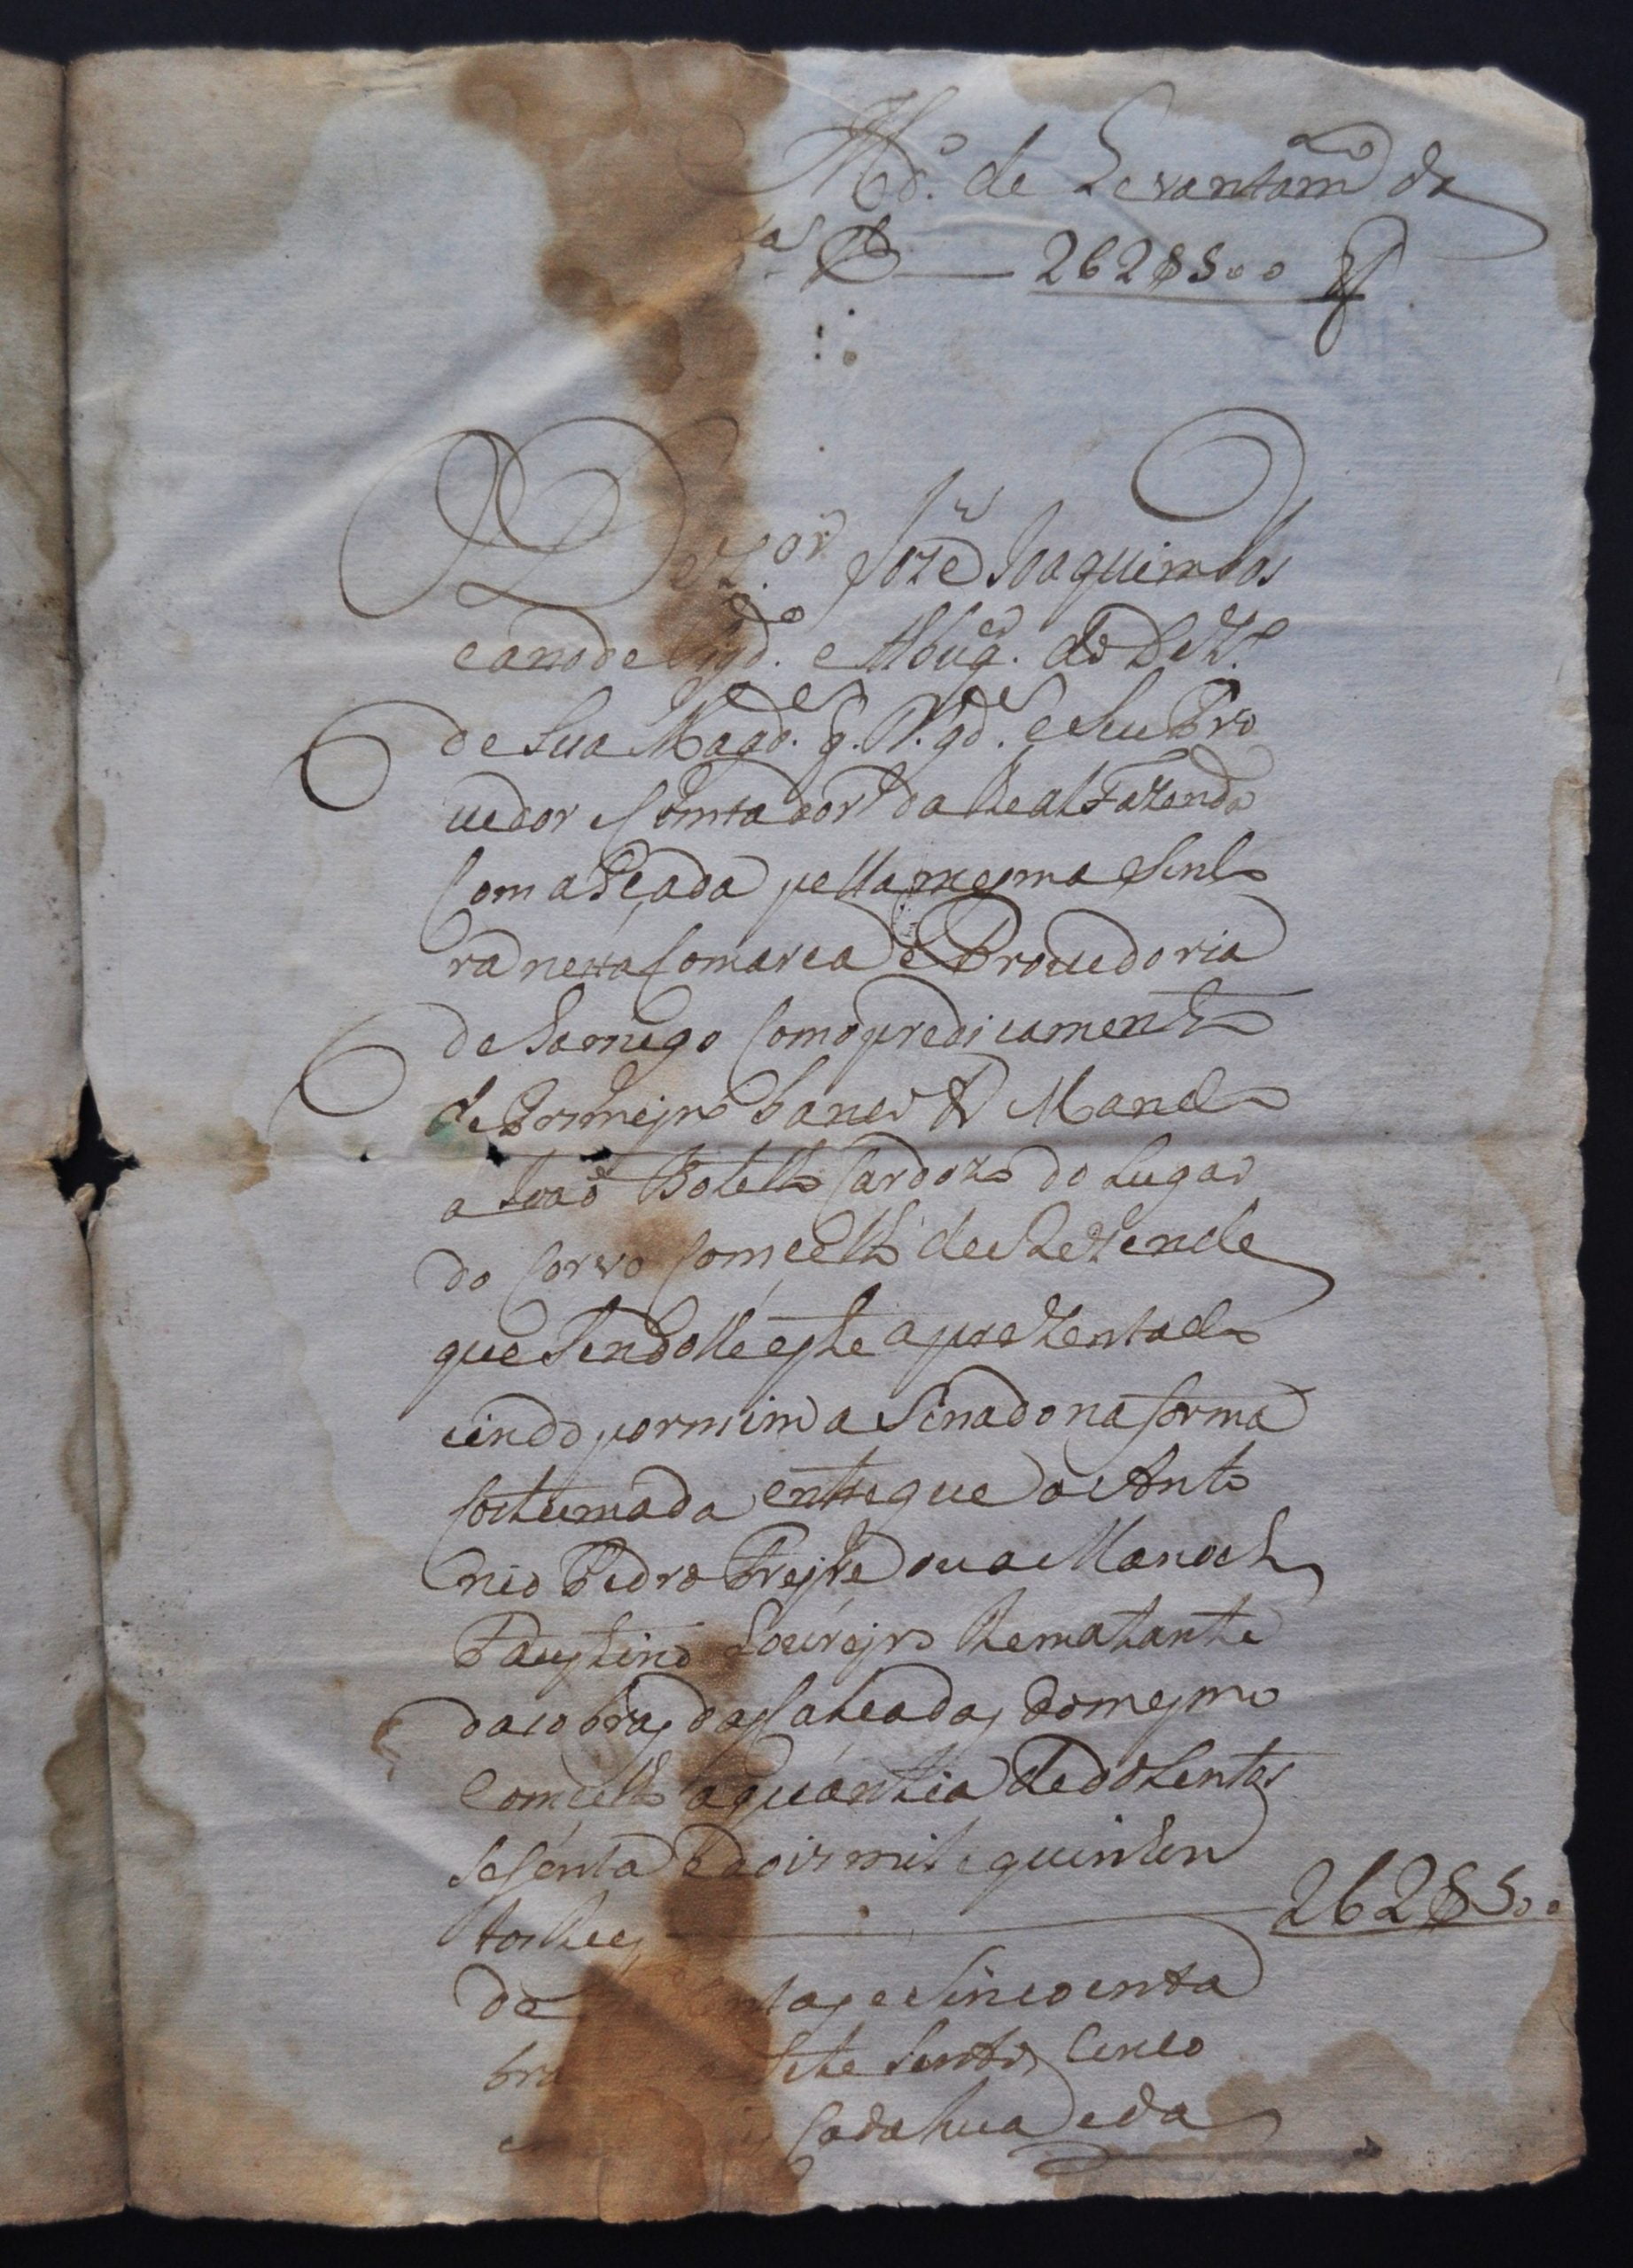 Md.º de Levantam.to da
q.ta ——— 262$500 r.s
Dez.or Joze Joaquim Cos
cano de e Albuq. do Dez.º
de Sua Mag.de q. D. g.de e Seu Pro
uedor e Contador da Real Fazenda
Com aLçada pella mesma e Sinb
ra nesta Comarca e Prouedoria
de Lamego Com o predicamento
de Primeyro banco &.ª Mando
a Joaõ Botelho Cardozo do Lugar
do Corvo Comçelho de Rezende
que Sendolhe este aprezentado
indo por mim aSinado na forma
Costumada entregue a Anto
nio Pedro Freyre ou a Manoel
Faustino Loureyro Rematante
das obras das Calcadas do mesmo
Comçelho a quantia de dozentos
seSenta e dois mil e quinhen
tos Reis ——— 262$500
de e Sincoenta
bra Sete Sentos Cinco
e Cada hua e da